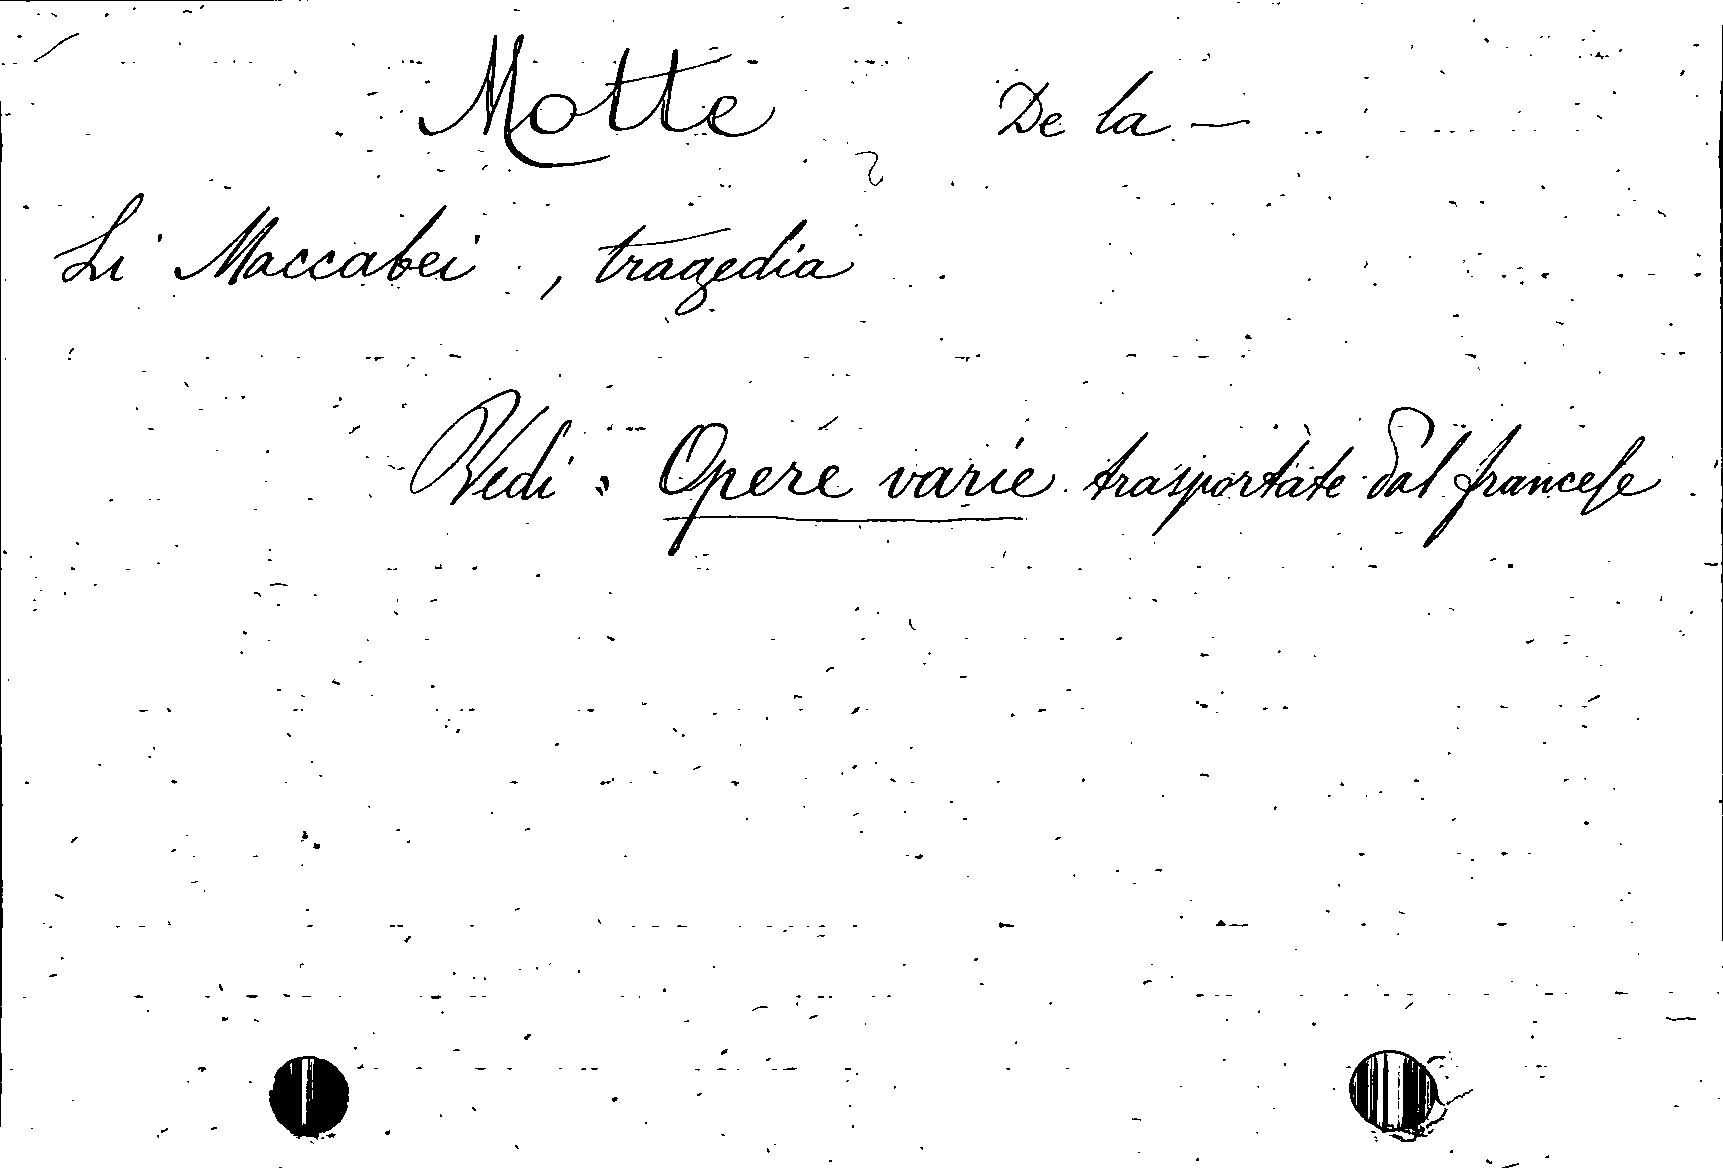 Motte De la —
Li Maccabei, tragedia
Vedi: Opere varie trasportate dal francese